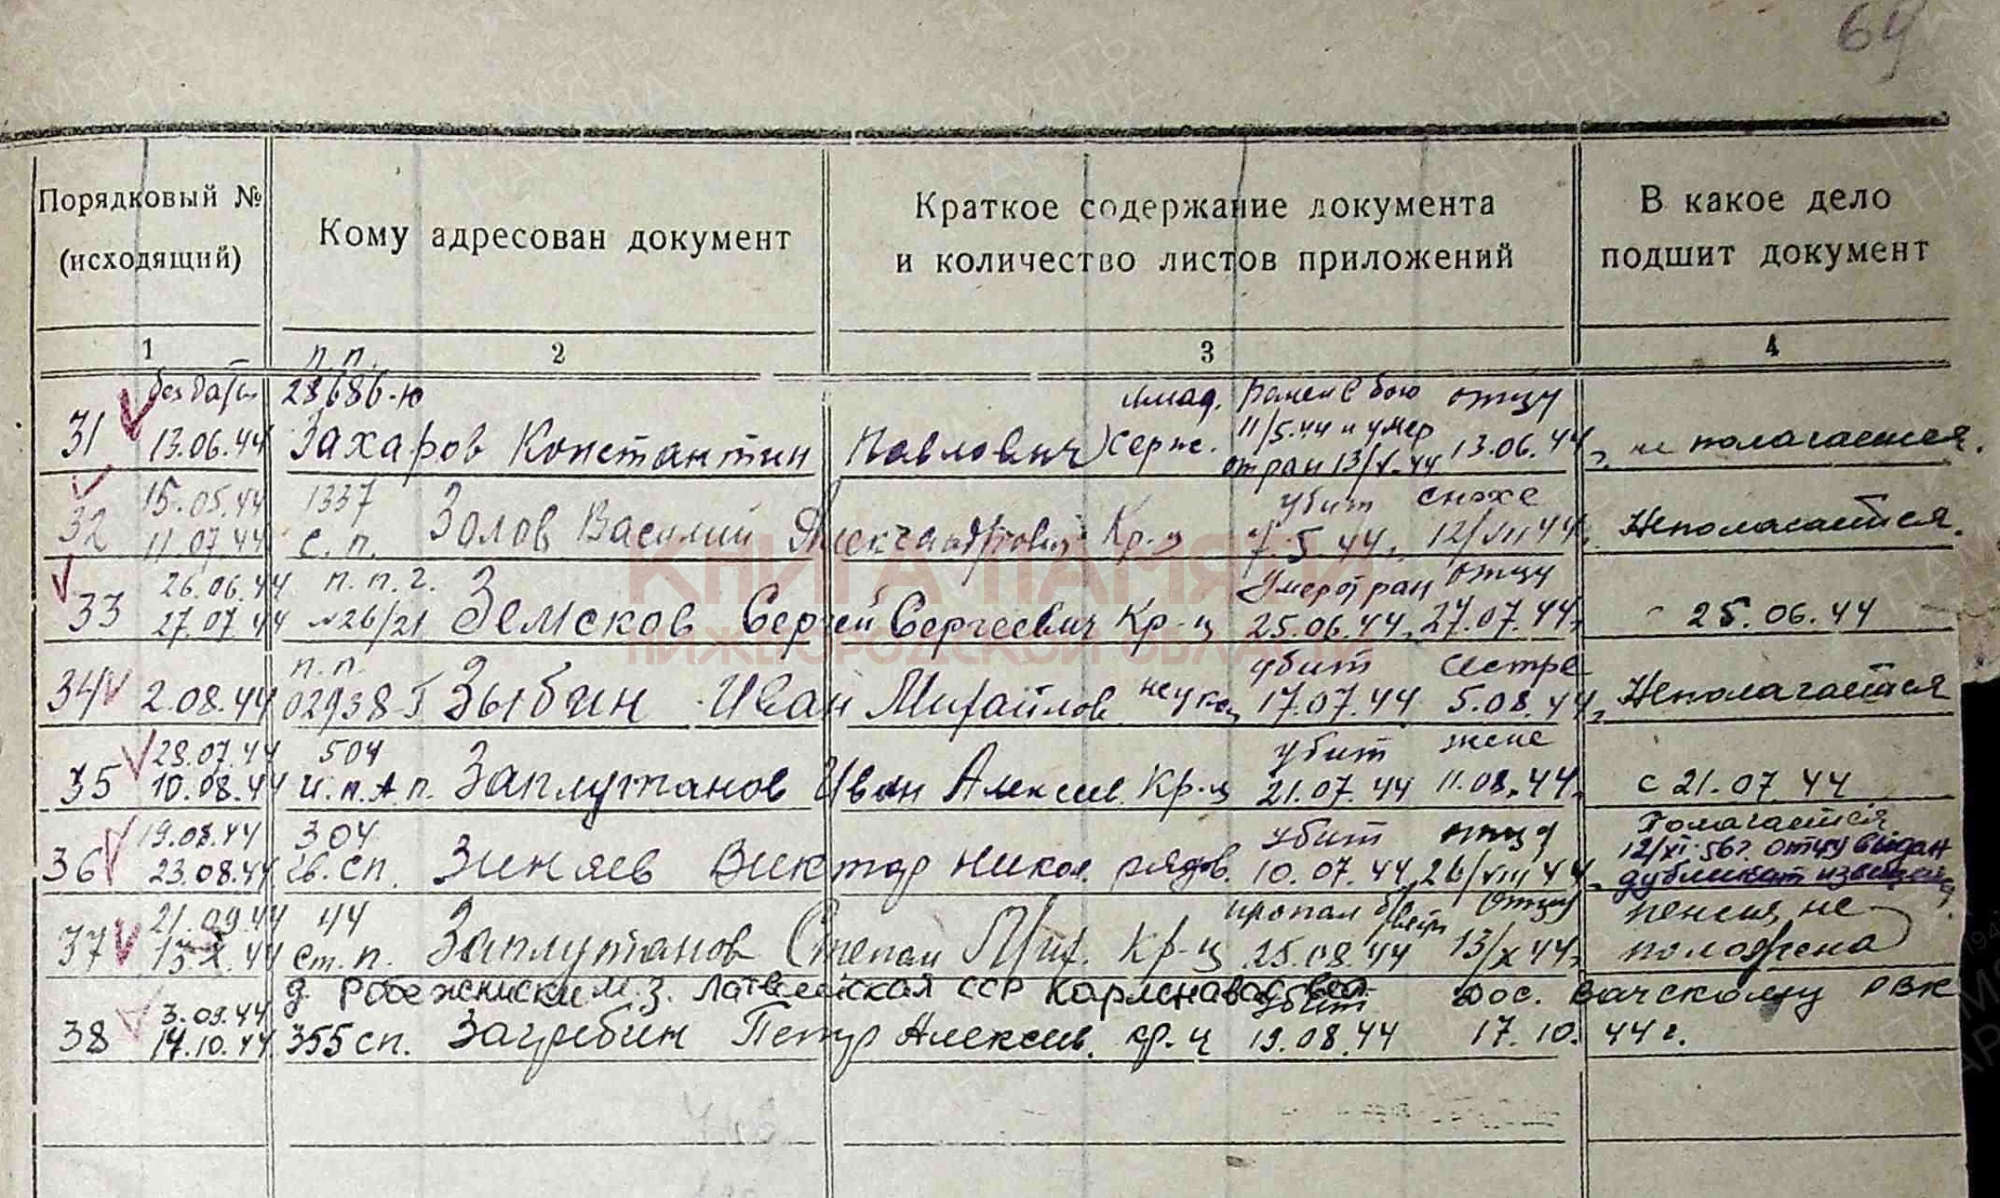 64
Порядковый №
(исходящий)
Кому адресован документ
Краткое содержание документа
и количество листов приложений
В какое дело
подшит документ
1
2
3
4
п.п.
без даты 28686-ю млад. Ранен в бою отцу
31 13.06.44 Захаров Константин Павлович серж. 11/5.44 и умер 13.06.44, не полагается.
от ран 13/V.44
15.05.44 1337 убит снохе
32 11.07.44 с.п. Золов Василий Александрович Кр-ц 7.5.44. 12/VII 44, Неполагается.
26.06.44 п.п.г. Умер от ран отцу
33 27.07.44 №26/21 Земсков Сергей Сергеевич Кр-ц 25.06.44. 27.07.44, с 25.06.44
п.п. убит сестре
34 2.08.44 02938 Зыбин Иван Михайлов. 17.07.44 5.08.44, Неполагается
28.07.44 504 убит жене
35 10.08.44 и.п.А.п. Заплутанов Иван Алексеев. Кр-ц 21.07.44 11.08.44, с 21.07.44
19.08.44 304 убит отцу Полагается
36 23.08.44 гв. сп. Зиняев Виктор Никол. рядов. 10.07.44, 26/VIII 44, 12/XI-56г. отцу выдан
дубликат извещения
21.09.44 44 пропал б/вести Отцу пенсия не
37 13.X.44 ст.п. Заплутанов Степан Мих. Кр-ц 25.08.44 13/X 44, положена
д. Робежниски м.з. Латвейская ССР Карленавас вол. Дос. Вачскому РВК
3.09.44 убит
38 14.10.44 355 сп. Загребин Петр Алексеев. кр.ц 19.08.44 17.10.44г.
КНИГА ПАМЯТИ
НИЖЕГОРОДСКОЙ ОБЛАСТИ